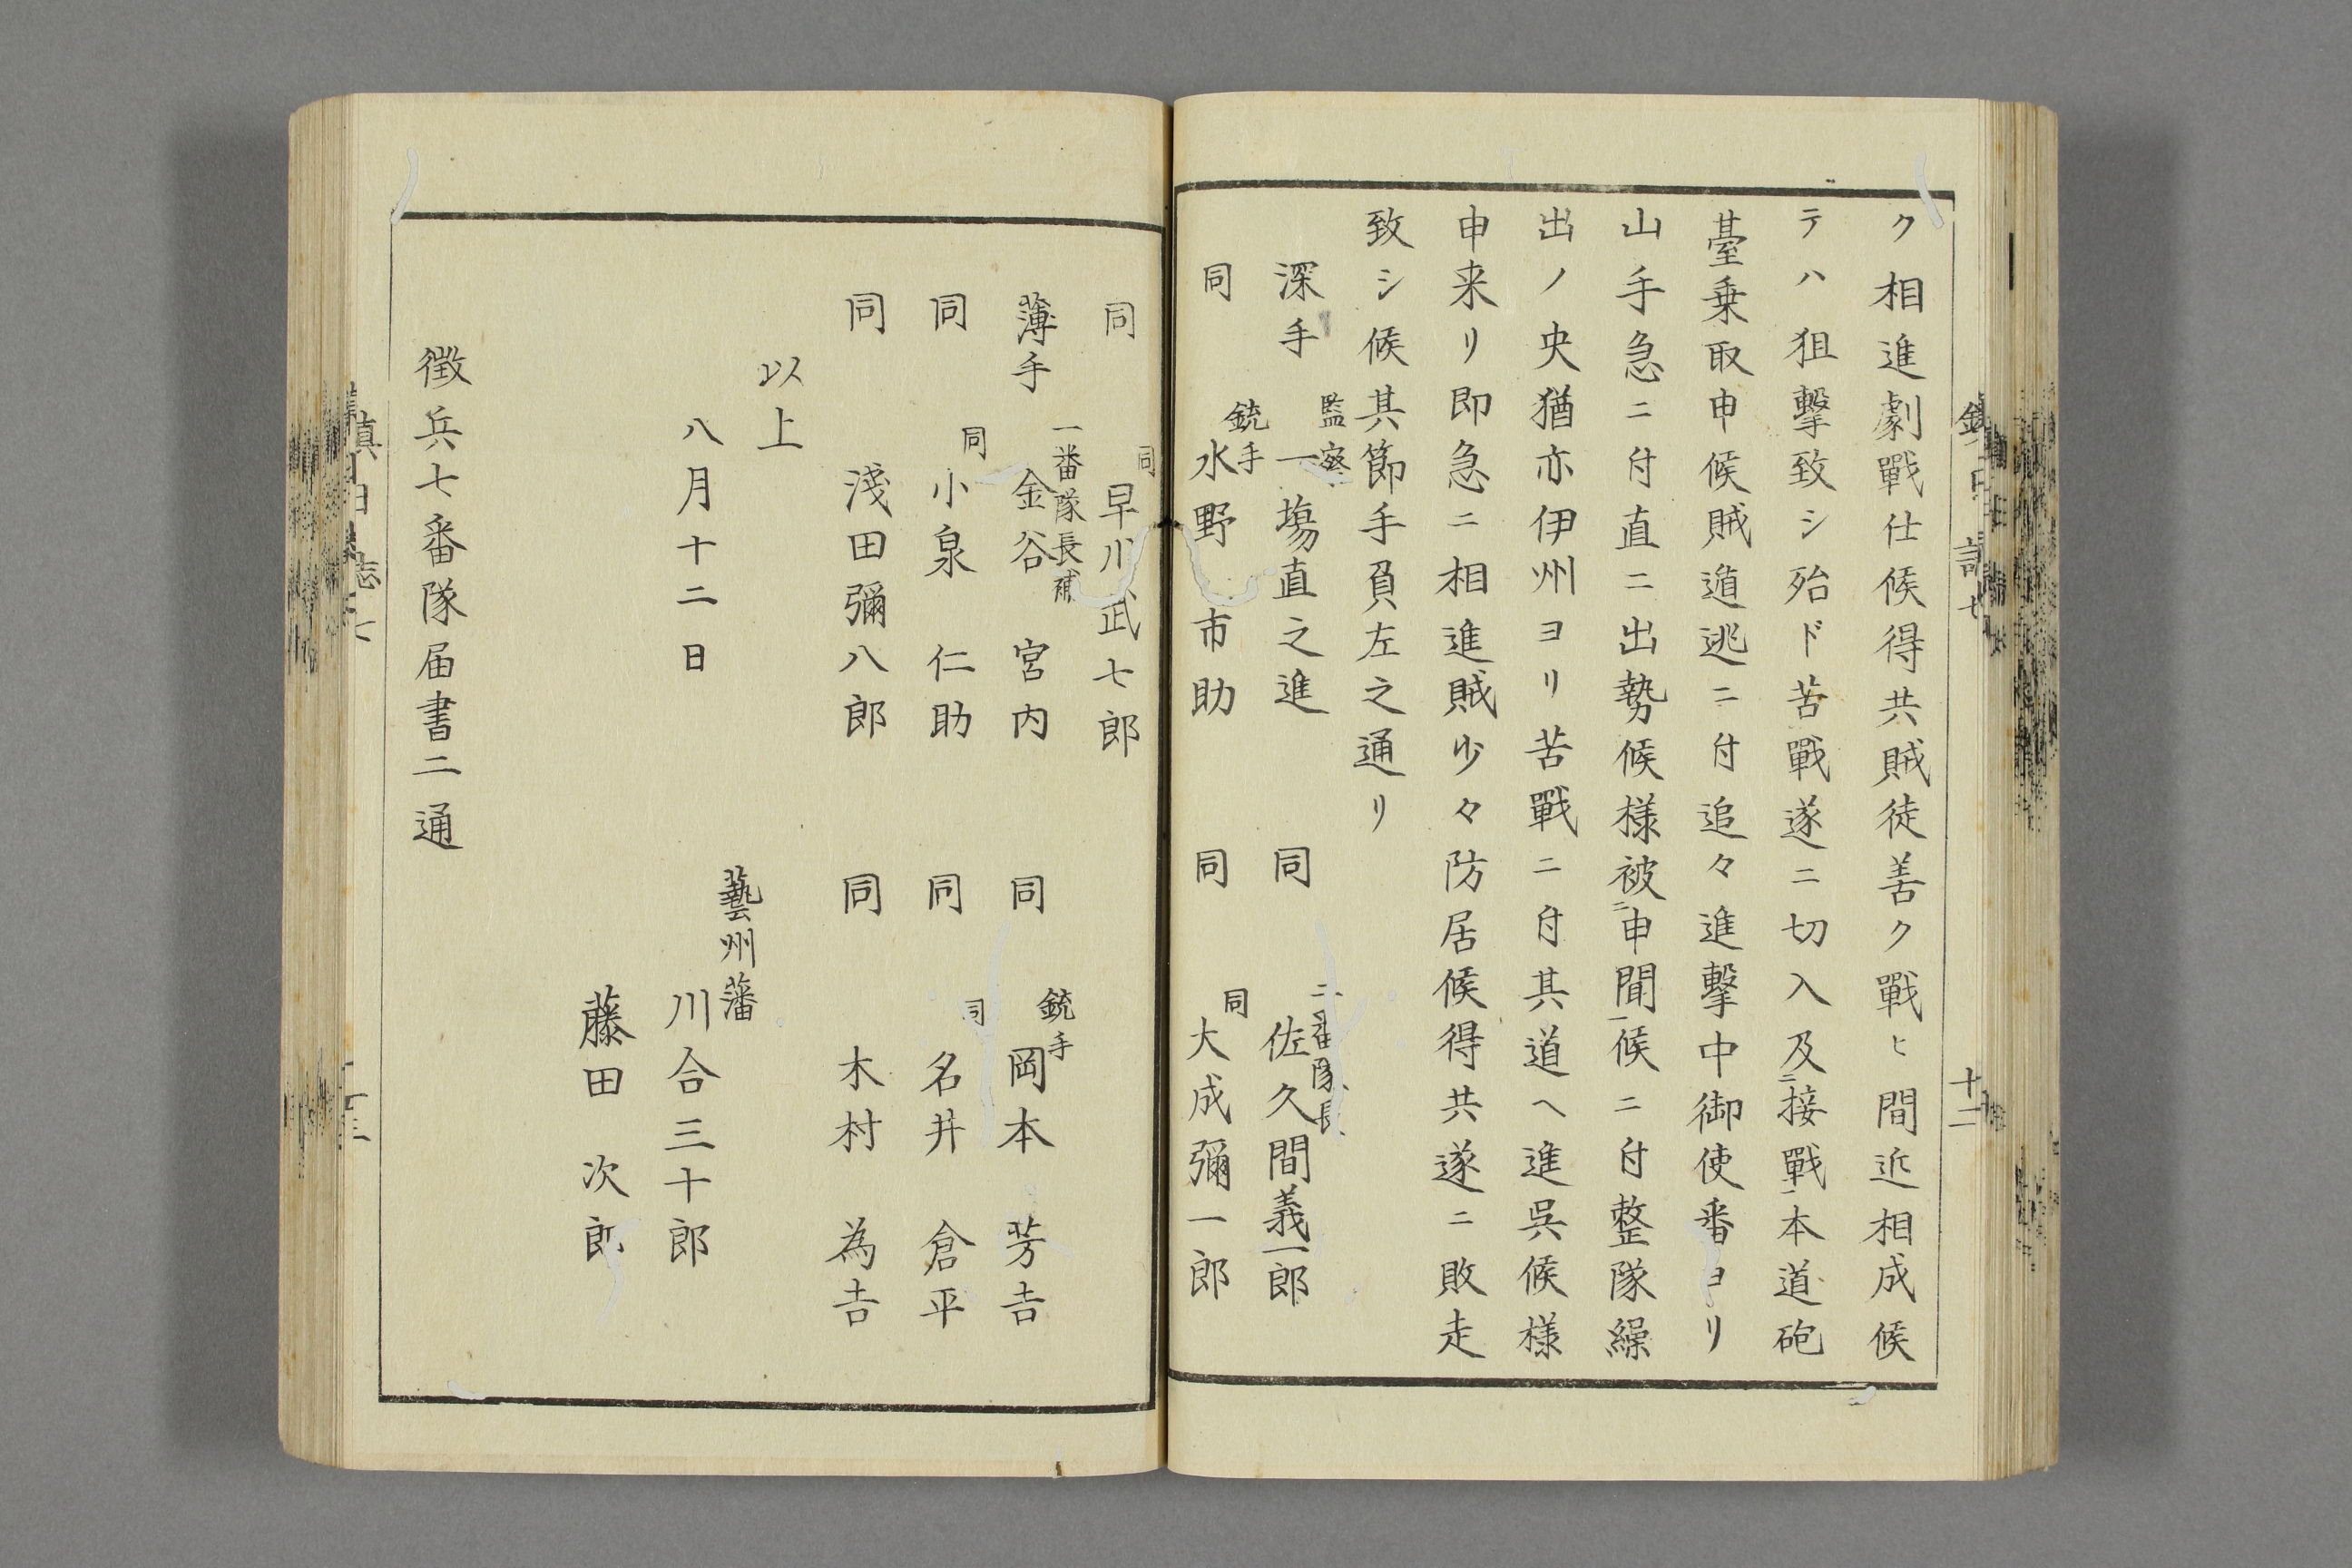 ク相進劇戰仕候得共賊徒善ク戰ヒ間近相成候
テハ狙擊致シ殆ド苦戰遂ニ切入及ニ接戰一本道砲
臺乗取申候賊遁逃ニ付追々進擊中御使番ヨリ
山手急ニ付直ニ出勢候樣被ニ申聞一候ニ付整隊繰
出ノ央猶亦伊州ヨリ苦戰ニ付其道ヘ進呉候樣
申来リ即急ニ相進賊少々防居候得共遂ニ敗走
致シ候其節手負左之通リ
深手 監察 一塲直之進 同 二番隊長 佐久間義一郎
同 銃手 水野市助 同 同 大成彌一郎
同 同 早川武七郎
薄手 一番隊長補 金谷宮内 同 銃手 岡本芳吉
同 同 小泉仁助 同 同 名井倉平
同 淺田彌八郎 同 木村為吉
以上
八月十二日
藝州藩
川合三十郎
藤田次郎
徴兵七番隊届書二通